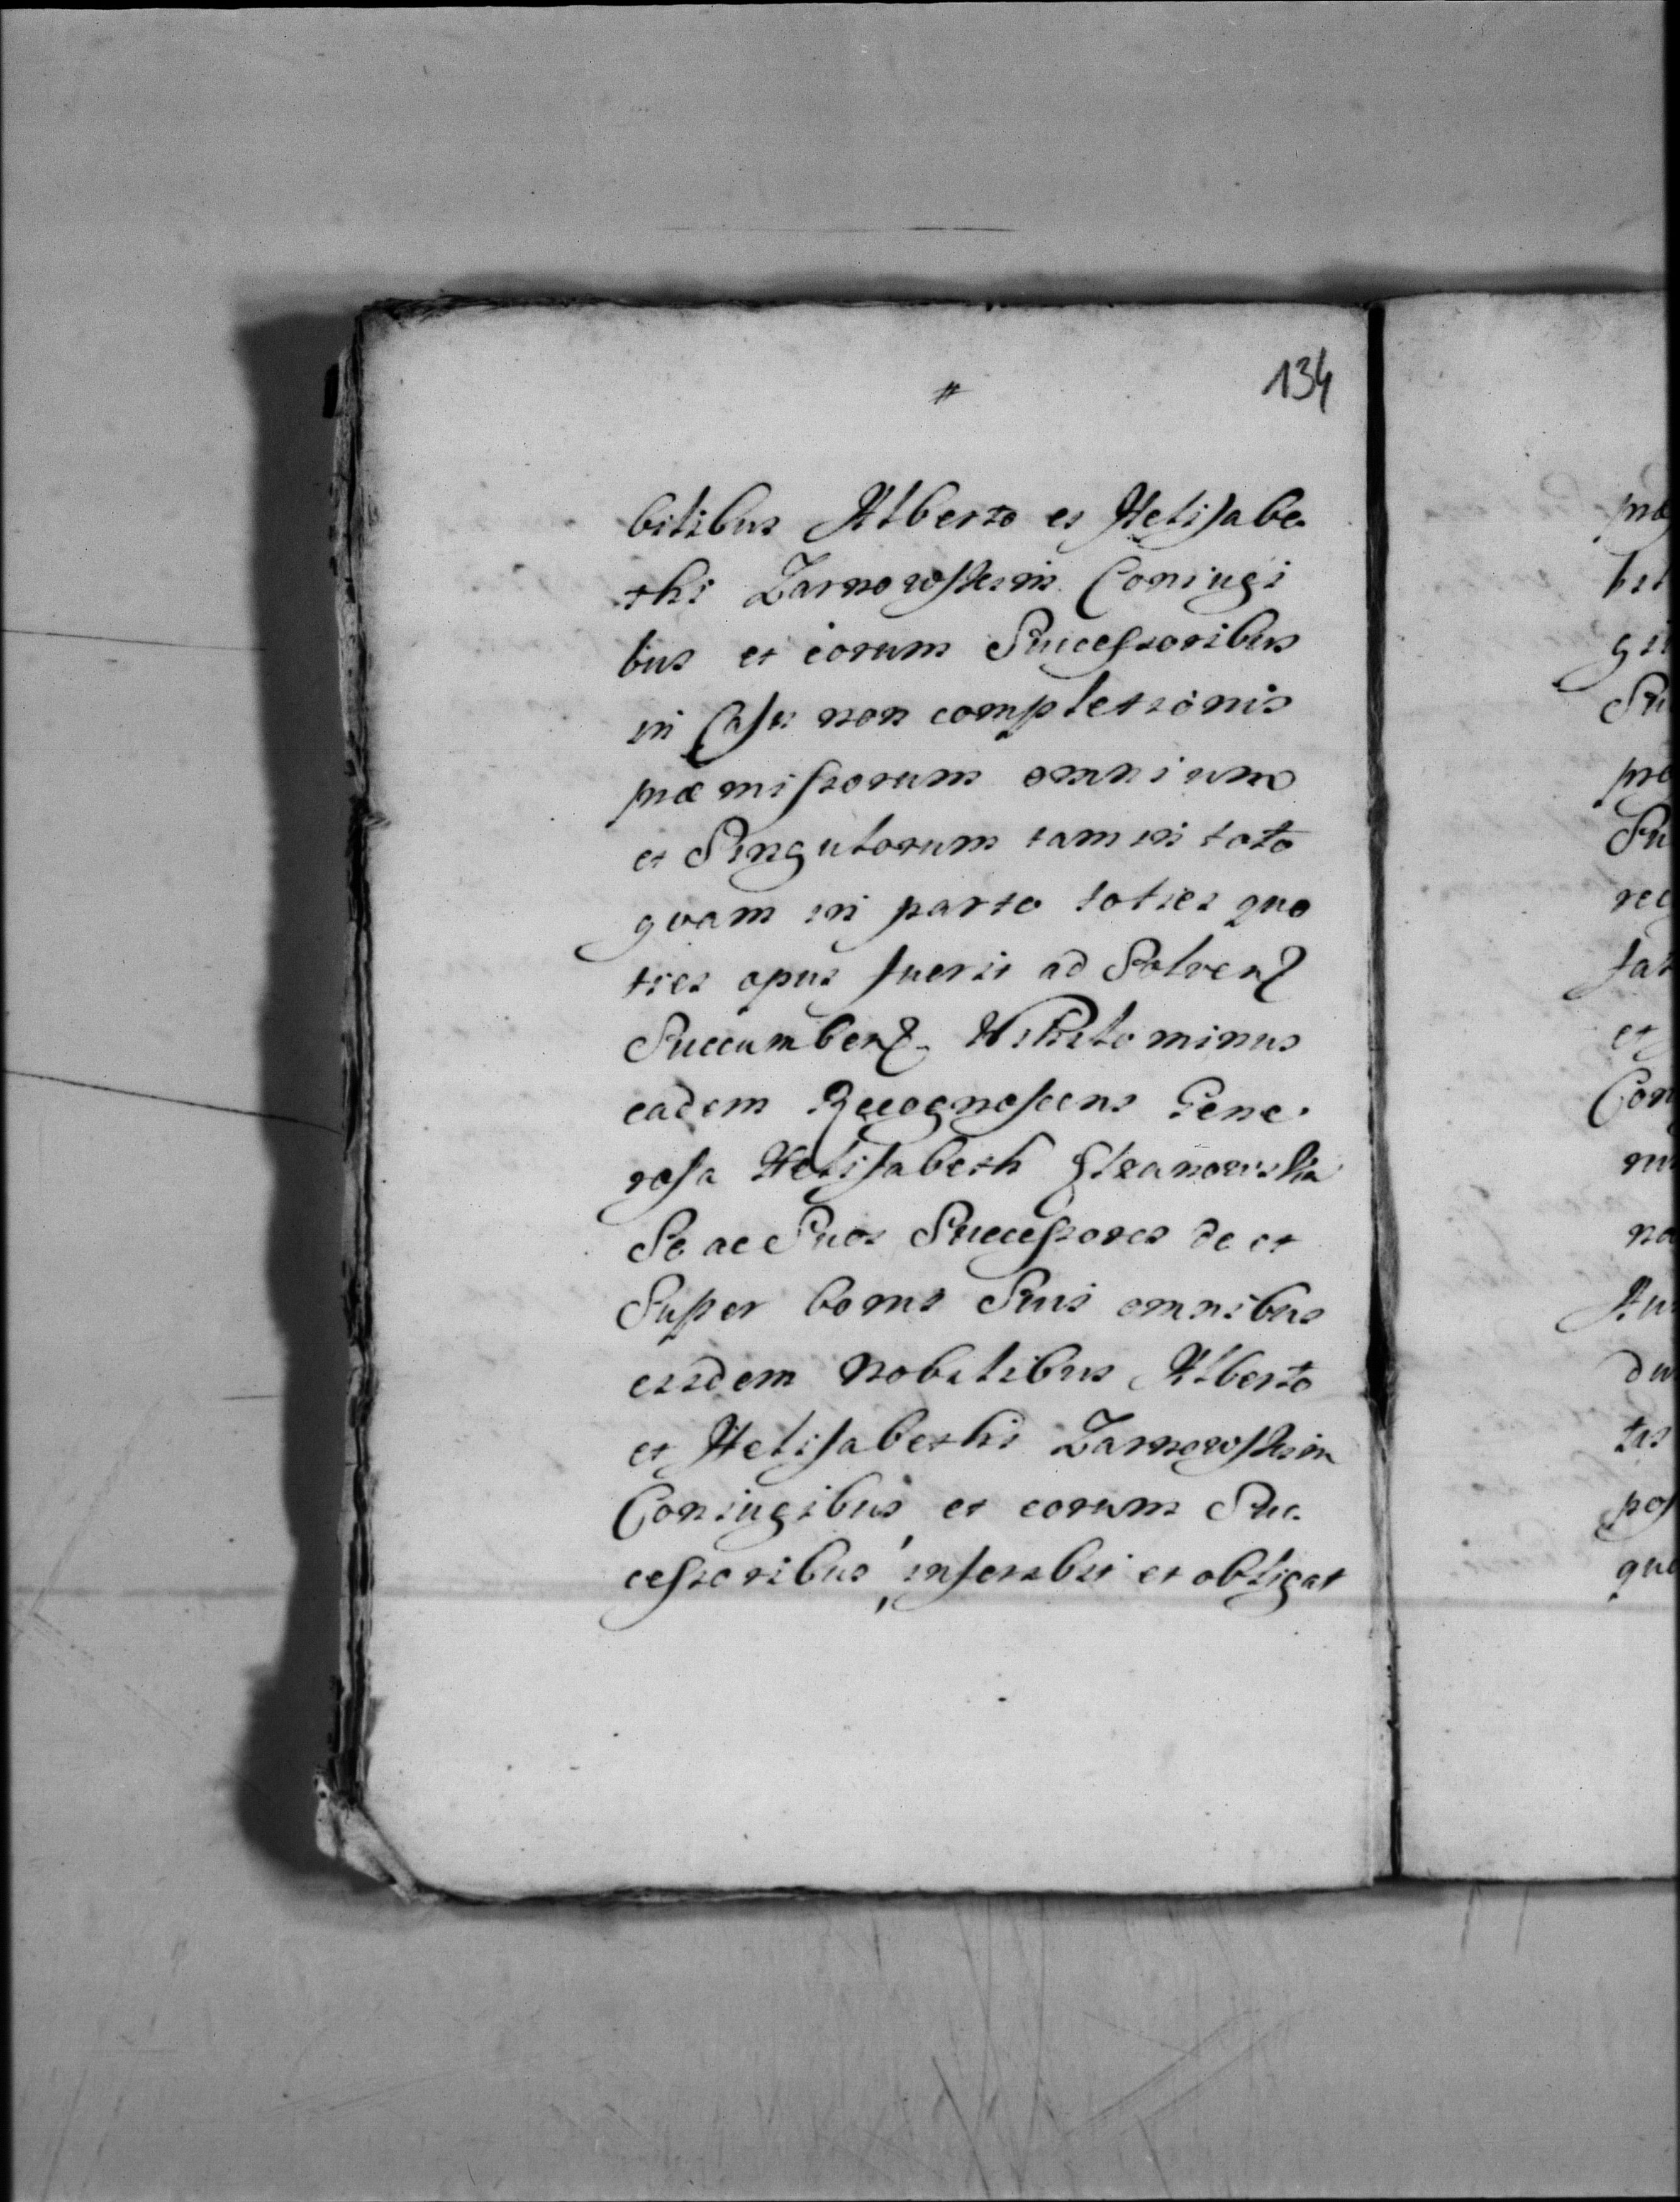 134
#
bilibus Alberto et Helisabe
thi Zarnowskim Coniugi
bus et eorum Successoribus
in Casu non completionis
præmissorum omnium
et Singulorum tam in toto
quam in parte toties quo
ties opus fuerit ad Solvend
Succumbend. Nihilominus
eadem Recognoscens Gene.
rosa Helisabeth
Se ac Suos Successores de et
Super bonis Suis omnibus
eisdem Nobilibus Alberto
et Helisabethi Zarnowskim
Coniugibus et eorum Suc.
cessoribus, inscribit et obligat
præ
bil
gi
Su
pre
Su
rec
fat
et
Con
na
du
tas
pos
que